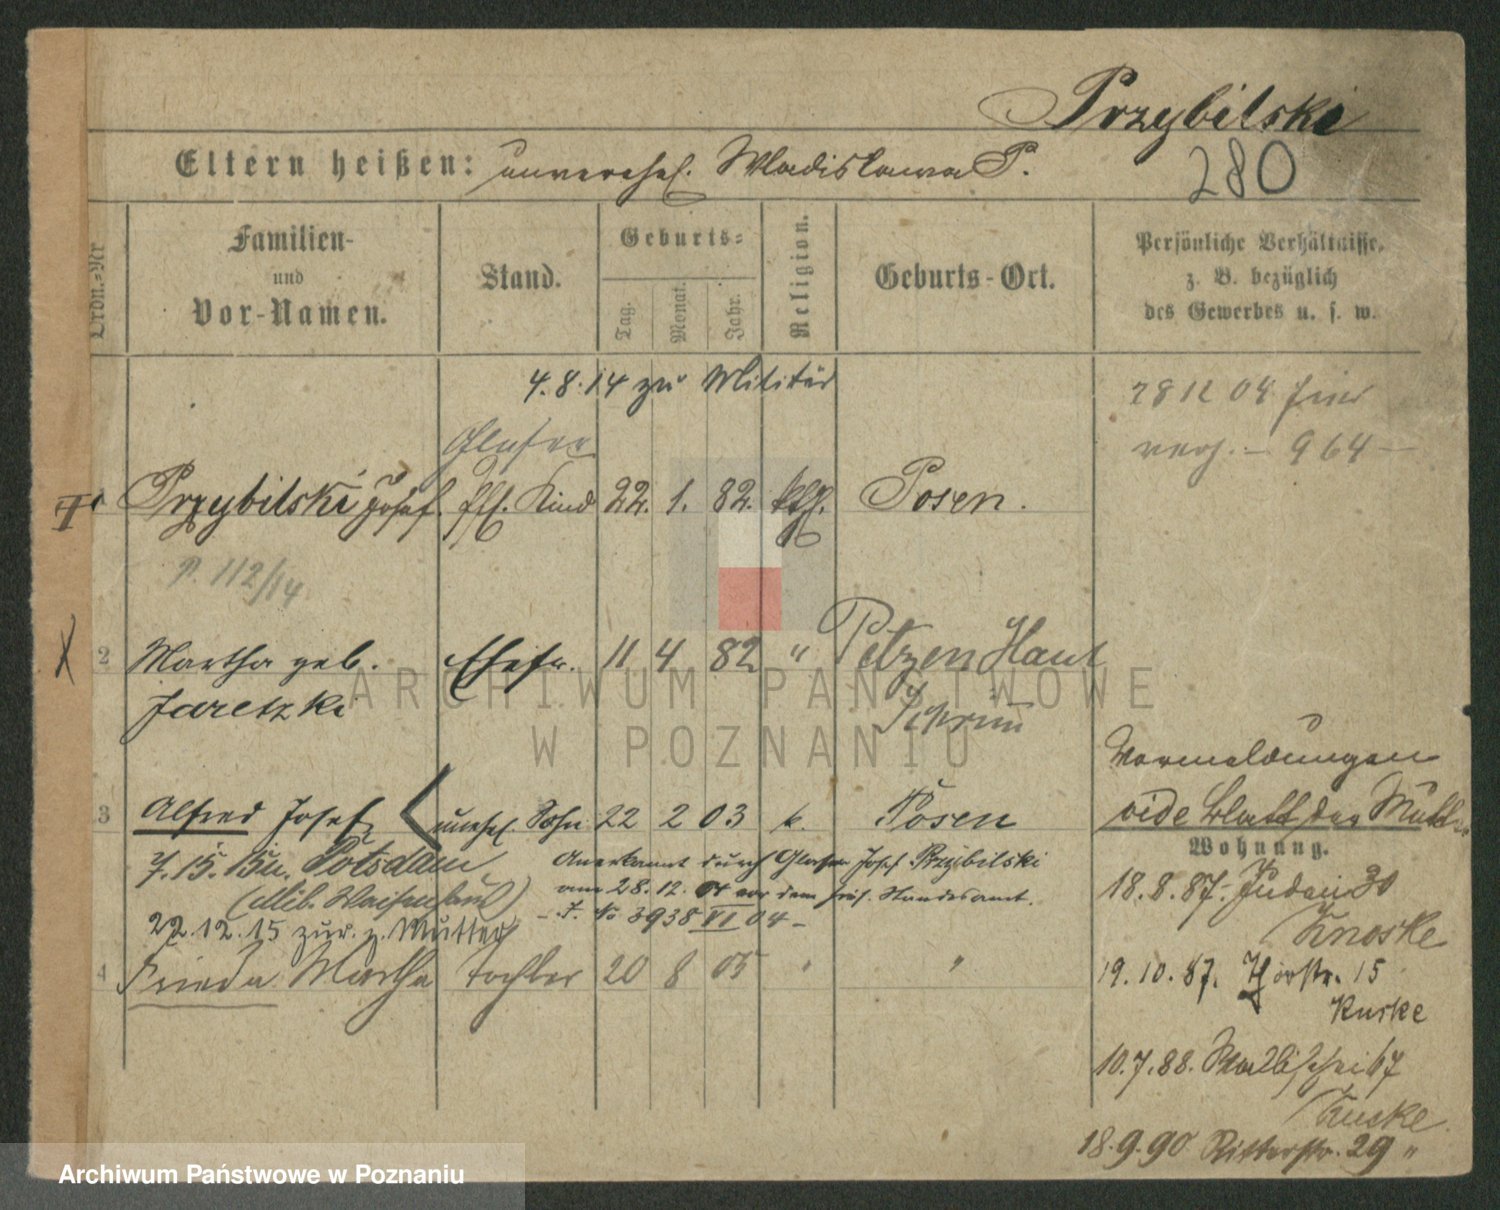 Przybilski
280
Eltern heißen: unverehel. Wladislawa P.
Ordn.-Nr
Familien-
und
Vor-Namen.
Stand.
Geburts-
Tag.
Monat.
Jahr.
Religion.
Geburts-Ort.
Persönliche Verhältnisse,
z. B. bezüglich
des Gewerbes u. s. w.
4.8.14 zu Militär
28 12 04
964
Glaser
1 Przybilski Josef. Kind 22. 1. 82. kth. Posen.
P. 112/14
2 Martha geb. Ehefr. 11 4 82 "
Jaretzki
Schrim
ARCHIWUM PAŃSTWOWE
W POZNANIU
Vormeldungen
vide Blatt der Mutter
3 Alfred Josef unehel. Sohn 22 2 03 k. Posen
Wohnung.
7.15. Potsdam
(Mil. Waisenhaus)
22.12.15 zur. z. Mutter
Anerkannt durch Glaser Josef Przybilski
am 28.12.04 vor dem hies. Standesamt.
- J. No 3938 VI 04 -
4 Frieda Martha Tochter 20 8 05 " "
18.8.87. Juden 30
Knoske
19.10.87. Thorstr. 15
Kuske
10.7.88. Wallischei 67
Kuske
18.9.90 Ritterstr. 29 "
Archiwum Państwowe w Poznaniu